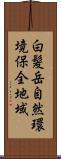 白髪岳自然環
境保全地域